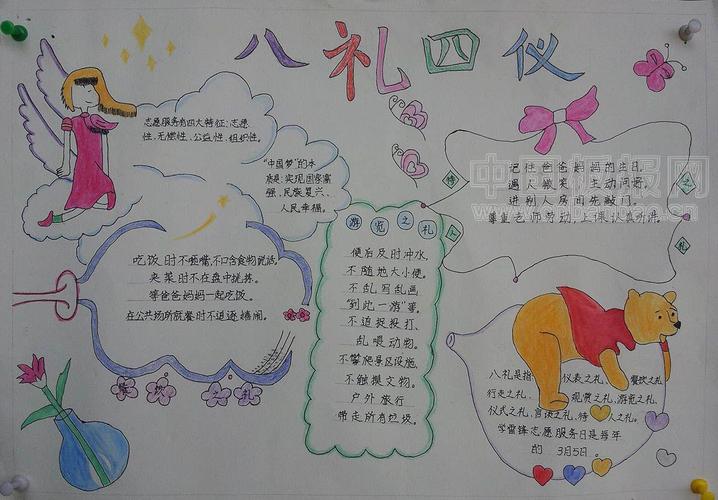 八礼四仪
志愿服务有四大特征：志愿
性、无偿性、公益性、组织性。
"中国梦"的本
质是：实现国家富
强、民族复兴、
人民幸福。
吃饭时不咂嘴，不口含食物说话。
夹菜时不在盘中挑拣。
等爸爸妈妈一起吃饭。
在公共场所就餐时不追逐、嬉闹。
餐饮之礼
游览之礼
便后及时冲水，
不随地大小便。
不乱写乱画
"到此一游"等。
不追捉投打、
乱喂动物。
不攀爬景区设施、
不触摸文物。
户外旅行
带走所有垃圾。
待人之礼
记住爸爸妈妈的生日。
遇人微笑，主动问好。
进别人房间先敲门。
尊重老师劳动，
八礼是指：仪表之礼、餐饮之礼
行走之礼、观赏之礼、游览之礼、
仪式之礼、言谈之礼、待人之礼。
学雷锋志愿服务日是每年
的 3月5日。